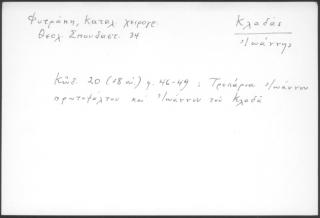 Φυτράκη, Καταλ. χειρογρ.
Θεολ. Σπουδαστ. 34
Κλαδᾶς
Ἰωάννης
Κῶδ. 20 (18 αἰ) φ. 46-49 : Τροπάρια Ἰωάννου
πρωτοψάλτου καὶ Ἰωάννου τοῦ Κλαδᾶ